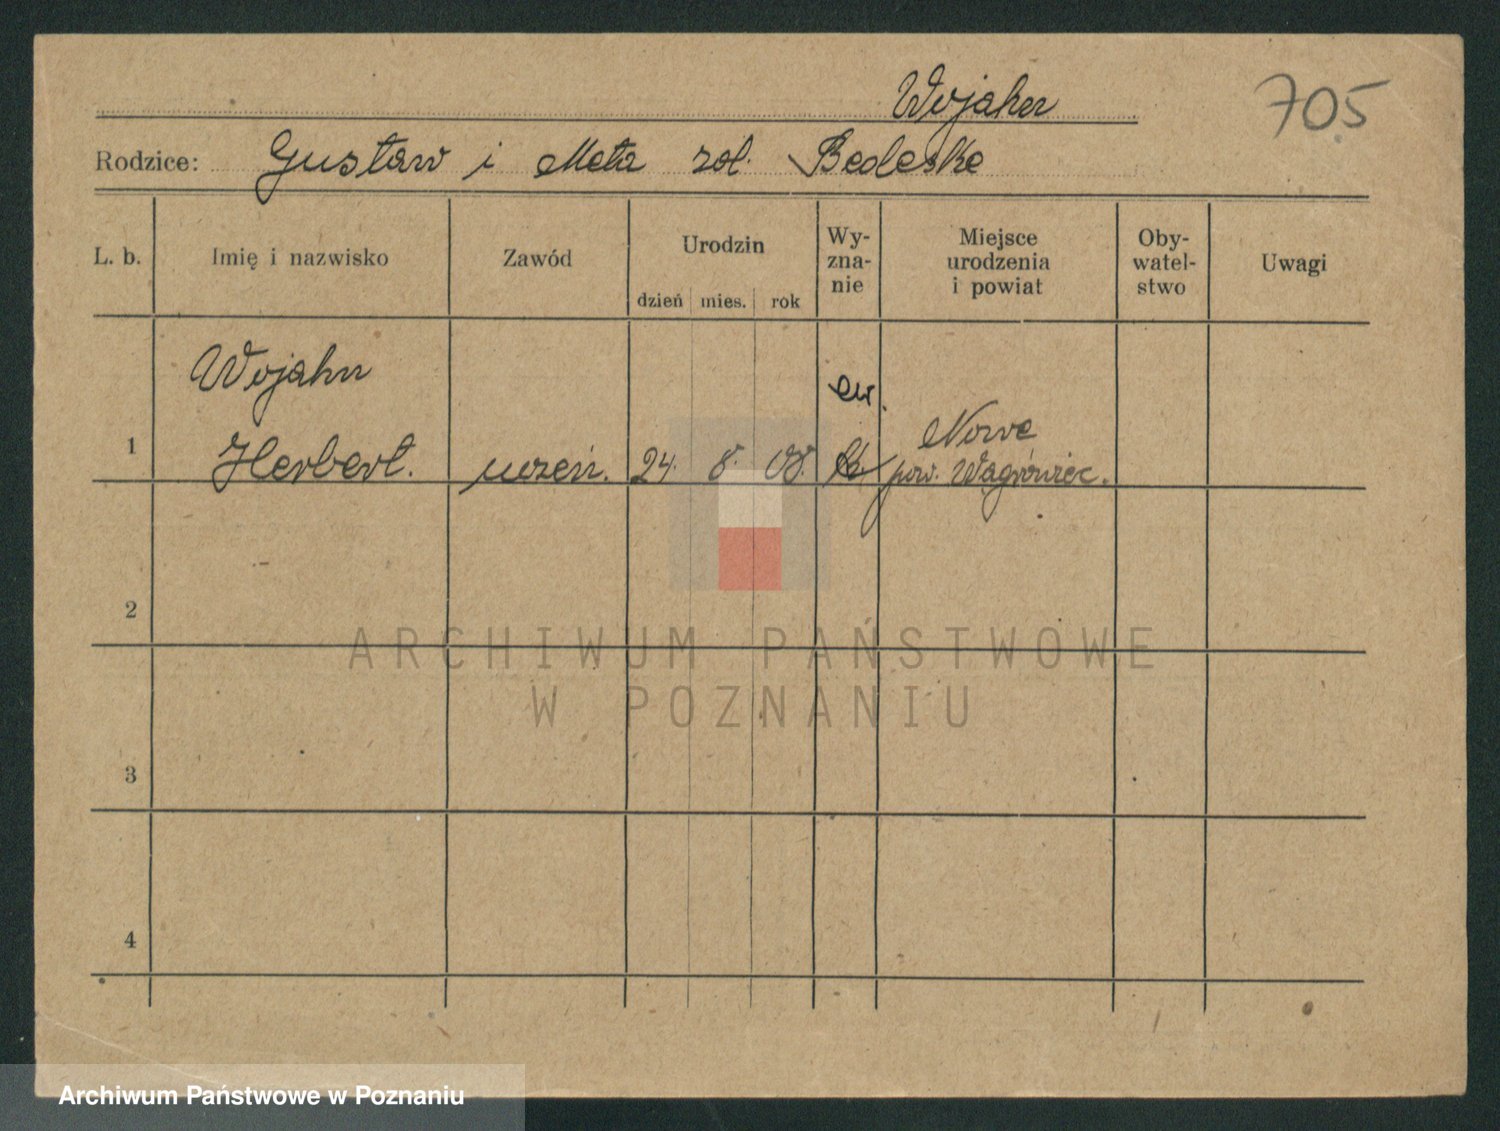 Wojahn 705
Rodzice: Gustaw i Meta zol. Bedeske
L. b. Imię i nazwisko Zawód Urodzin dzień mies. rok Wy-zna-nie Miejsce urodzenia i powiat Oby-watel-stwo Uwagi
Wojahn ew.
1 Herbert. uczeń. 24. 8. 08. Nowe
pow. Wągrówiec.
2
ARCHIWUM PAŃSTWOWE
W POZNANIU
3
4
Archiwum Państwowe w Poznaniu